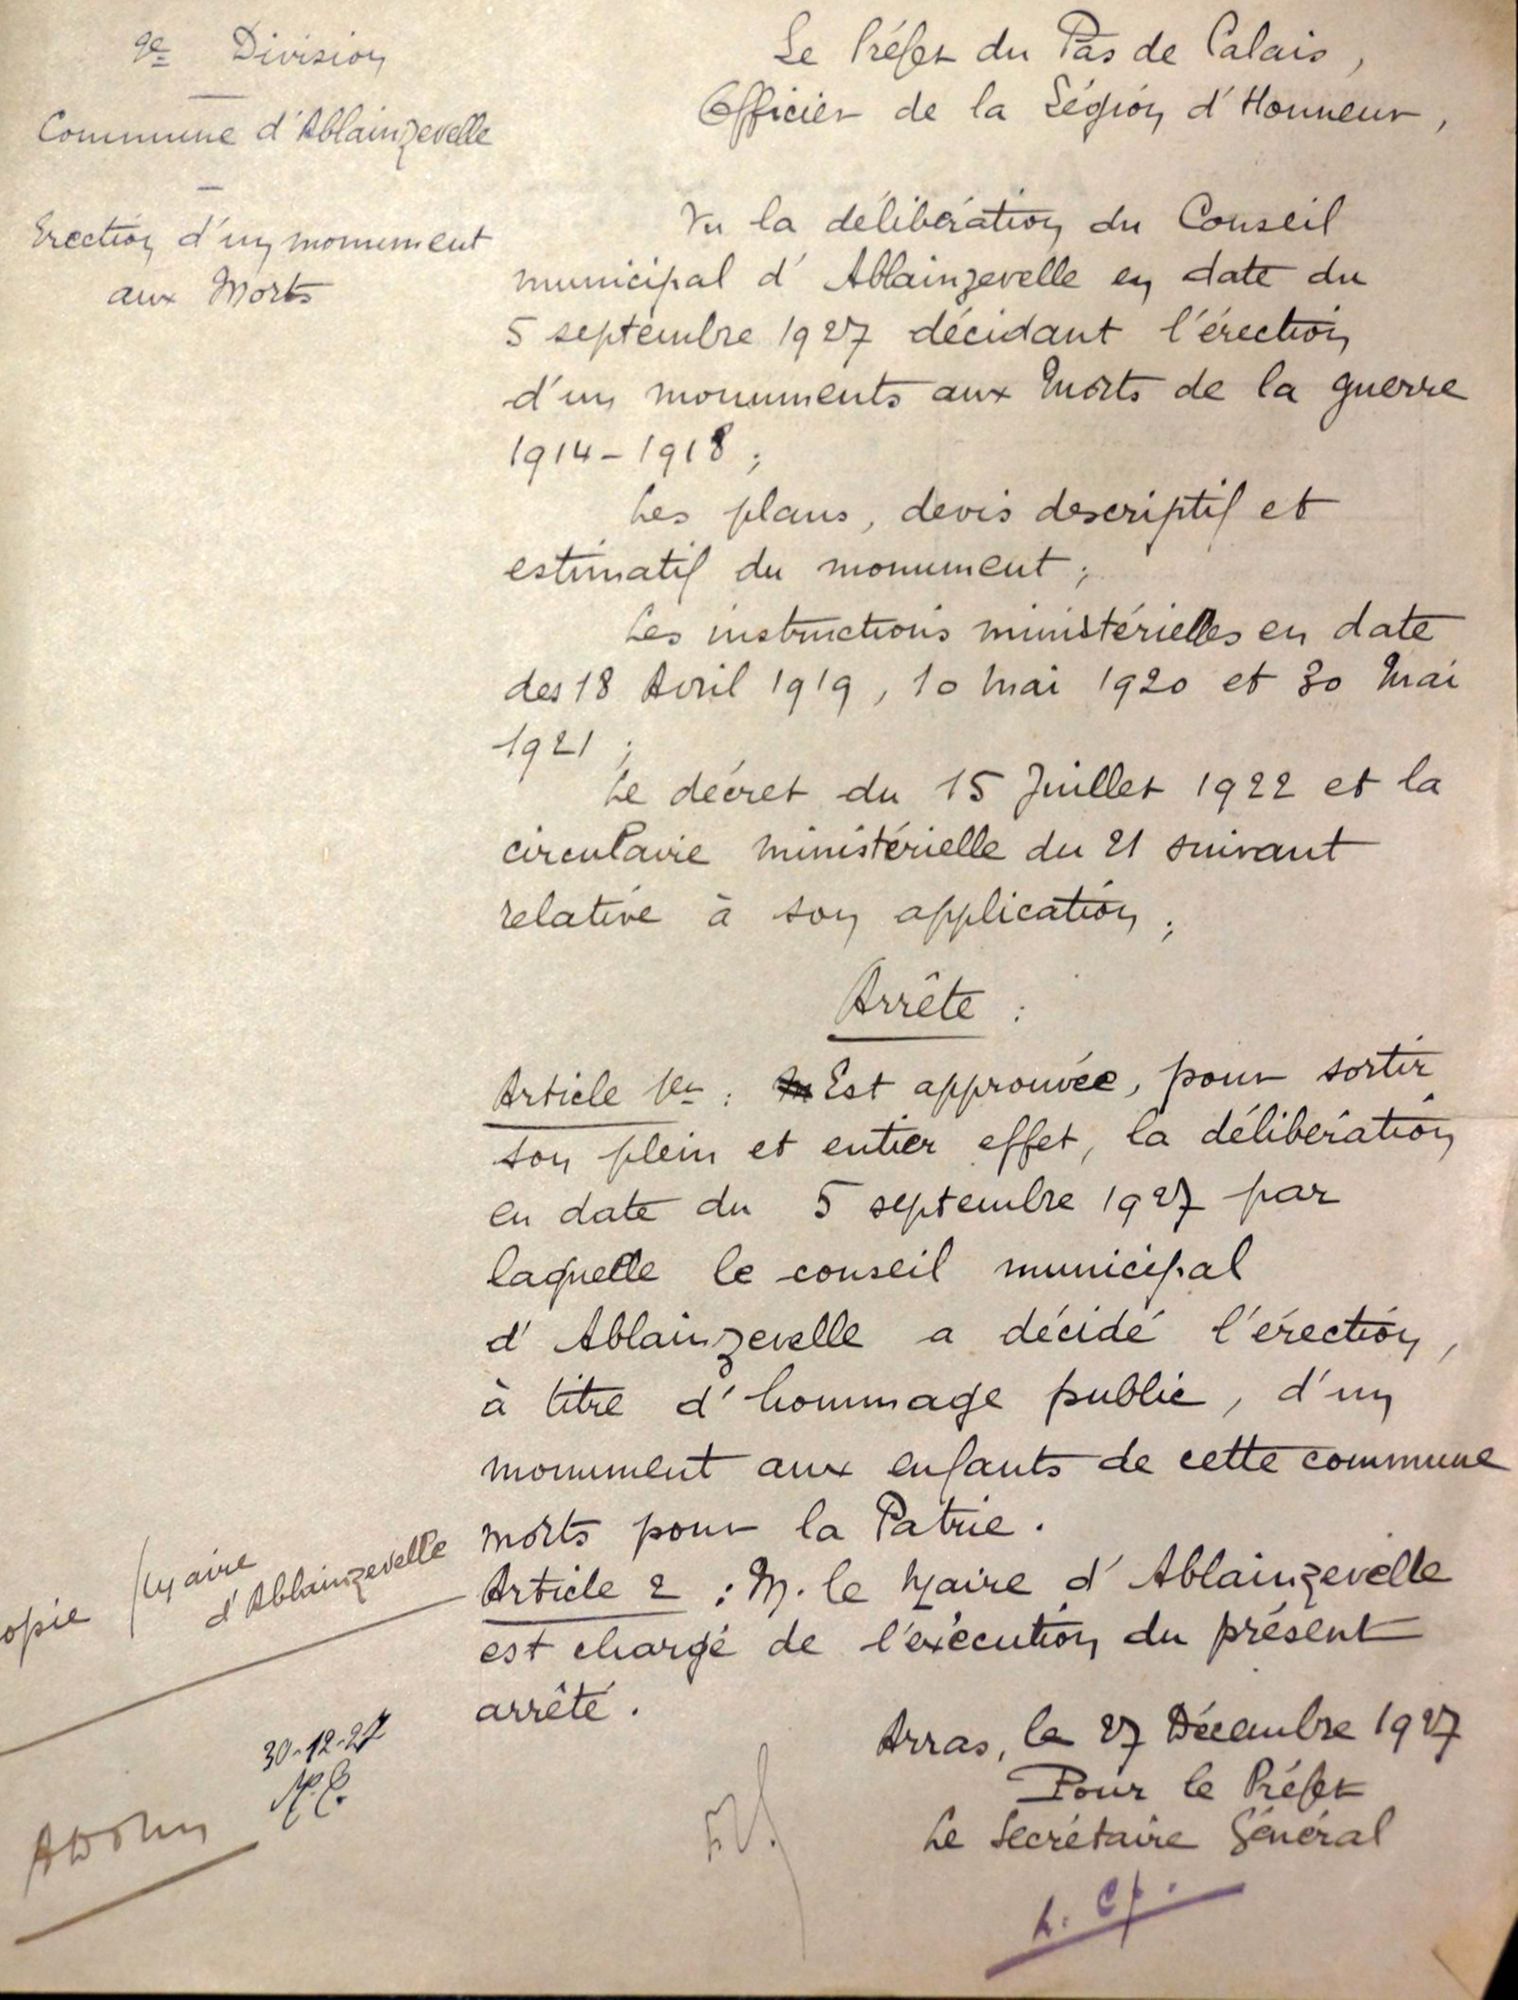 9e Division
Commune d'Ablainzevelle
Erection d'un monument
aux Morts
Le Préfet du Pas de Calais,
Officier de la Légion d'Honneur,
Vu la délibération du Conseil
municipal d'Ablainzevelle en date du
5 septembre 1927 décidant l'érection
d'un monuments aux Morts de la guerre
1914-1918 ;
Les plans, devis descriptif et
estimatif du monument ;
Les instructions ministérielles en date
des 18 Avril 1919, 10 Mai 1920 et 30 Mai
1921 ;
Le décret du 15 Juillet 1922 et la
circulaire ministérielle du 21 suivant
relative à son application ;
Arrête :
Article 1er : Est approuvée, pour sortir
son plein et entier effet, la délibération
en date du 5 septembre 1927 par
laquelle le conseil municipal
d'Ablainzevelle a décidé l'érection,
à titre d'hommage public, d'un
monument aux enfants de cette commune
morts pour la Patrie.
Article 2 : M. le Maire d'Ablainzevelle
est chargé de l'exécution du présent
arrêté.
Arras, le 27 Décembre 1927
Pour le Préfet
Le Secrétaire Général
opie
Maire
d'Ablainzevelle
30-12-27